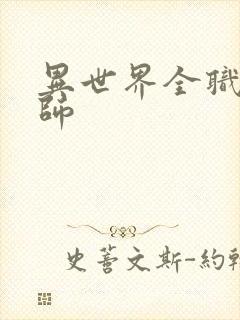 異世界全職
師
史蒈文斯-約翰